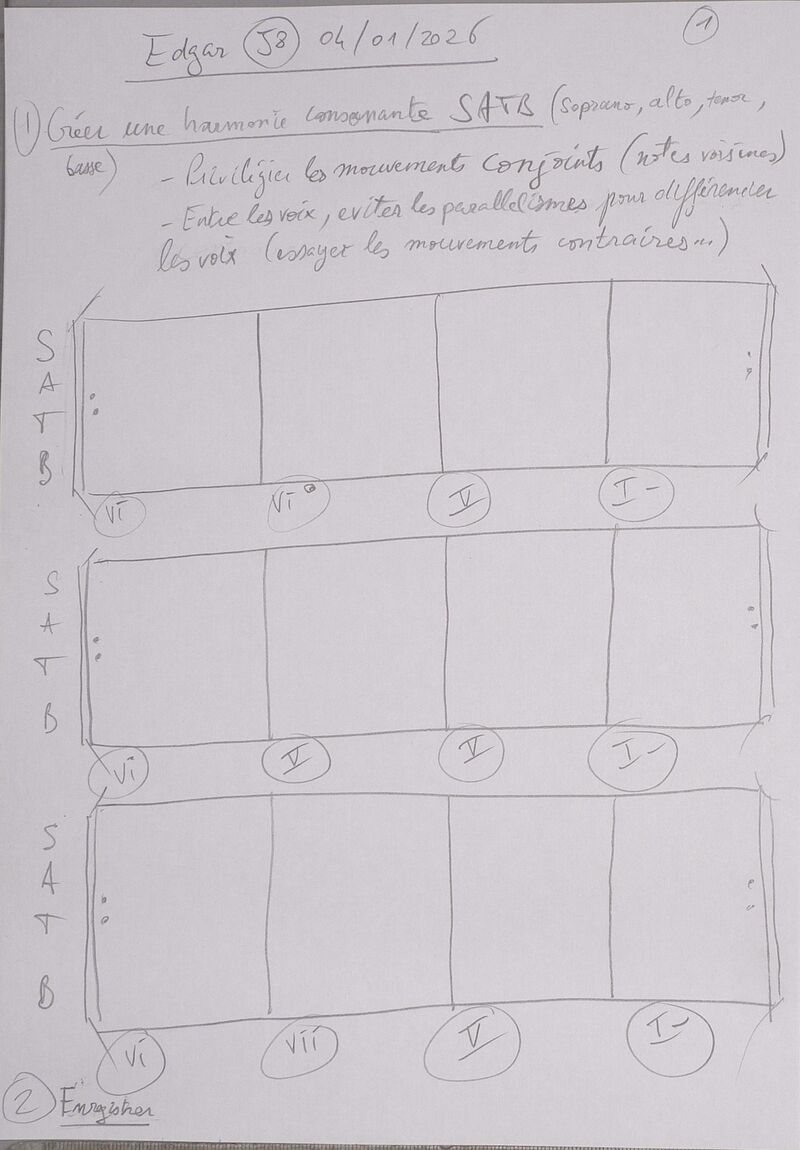 Edgar J8 04/01/2026
1
1) Créer une harmonie consonante SATB (soprano, alto, tenor,
basse)
- Privilégier les mouvements conjoints (notes voisines)
- Entre les voix, eviter les parallelismes pour différencier
les voix (essayer les mouvements contraires...)
S
A
T
B
vi vi° V I -
S
A
T
B
vi V V I -
S
A
T
B
vi vii V I -
2 Enregistrer